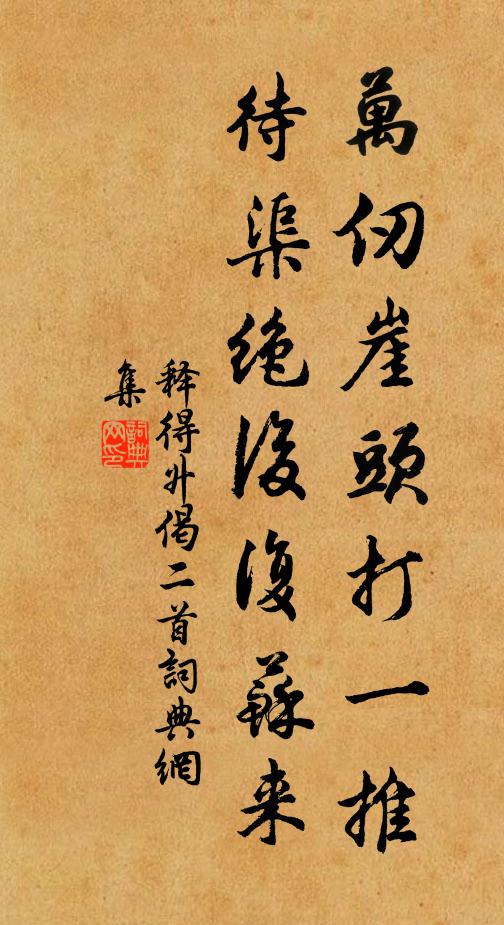 萬仞崖頭打一推
待渠絶後復蘇来
释得升偈二首詞典網
集
詞典網印